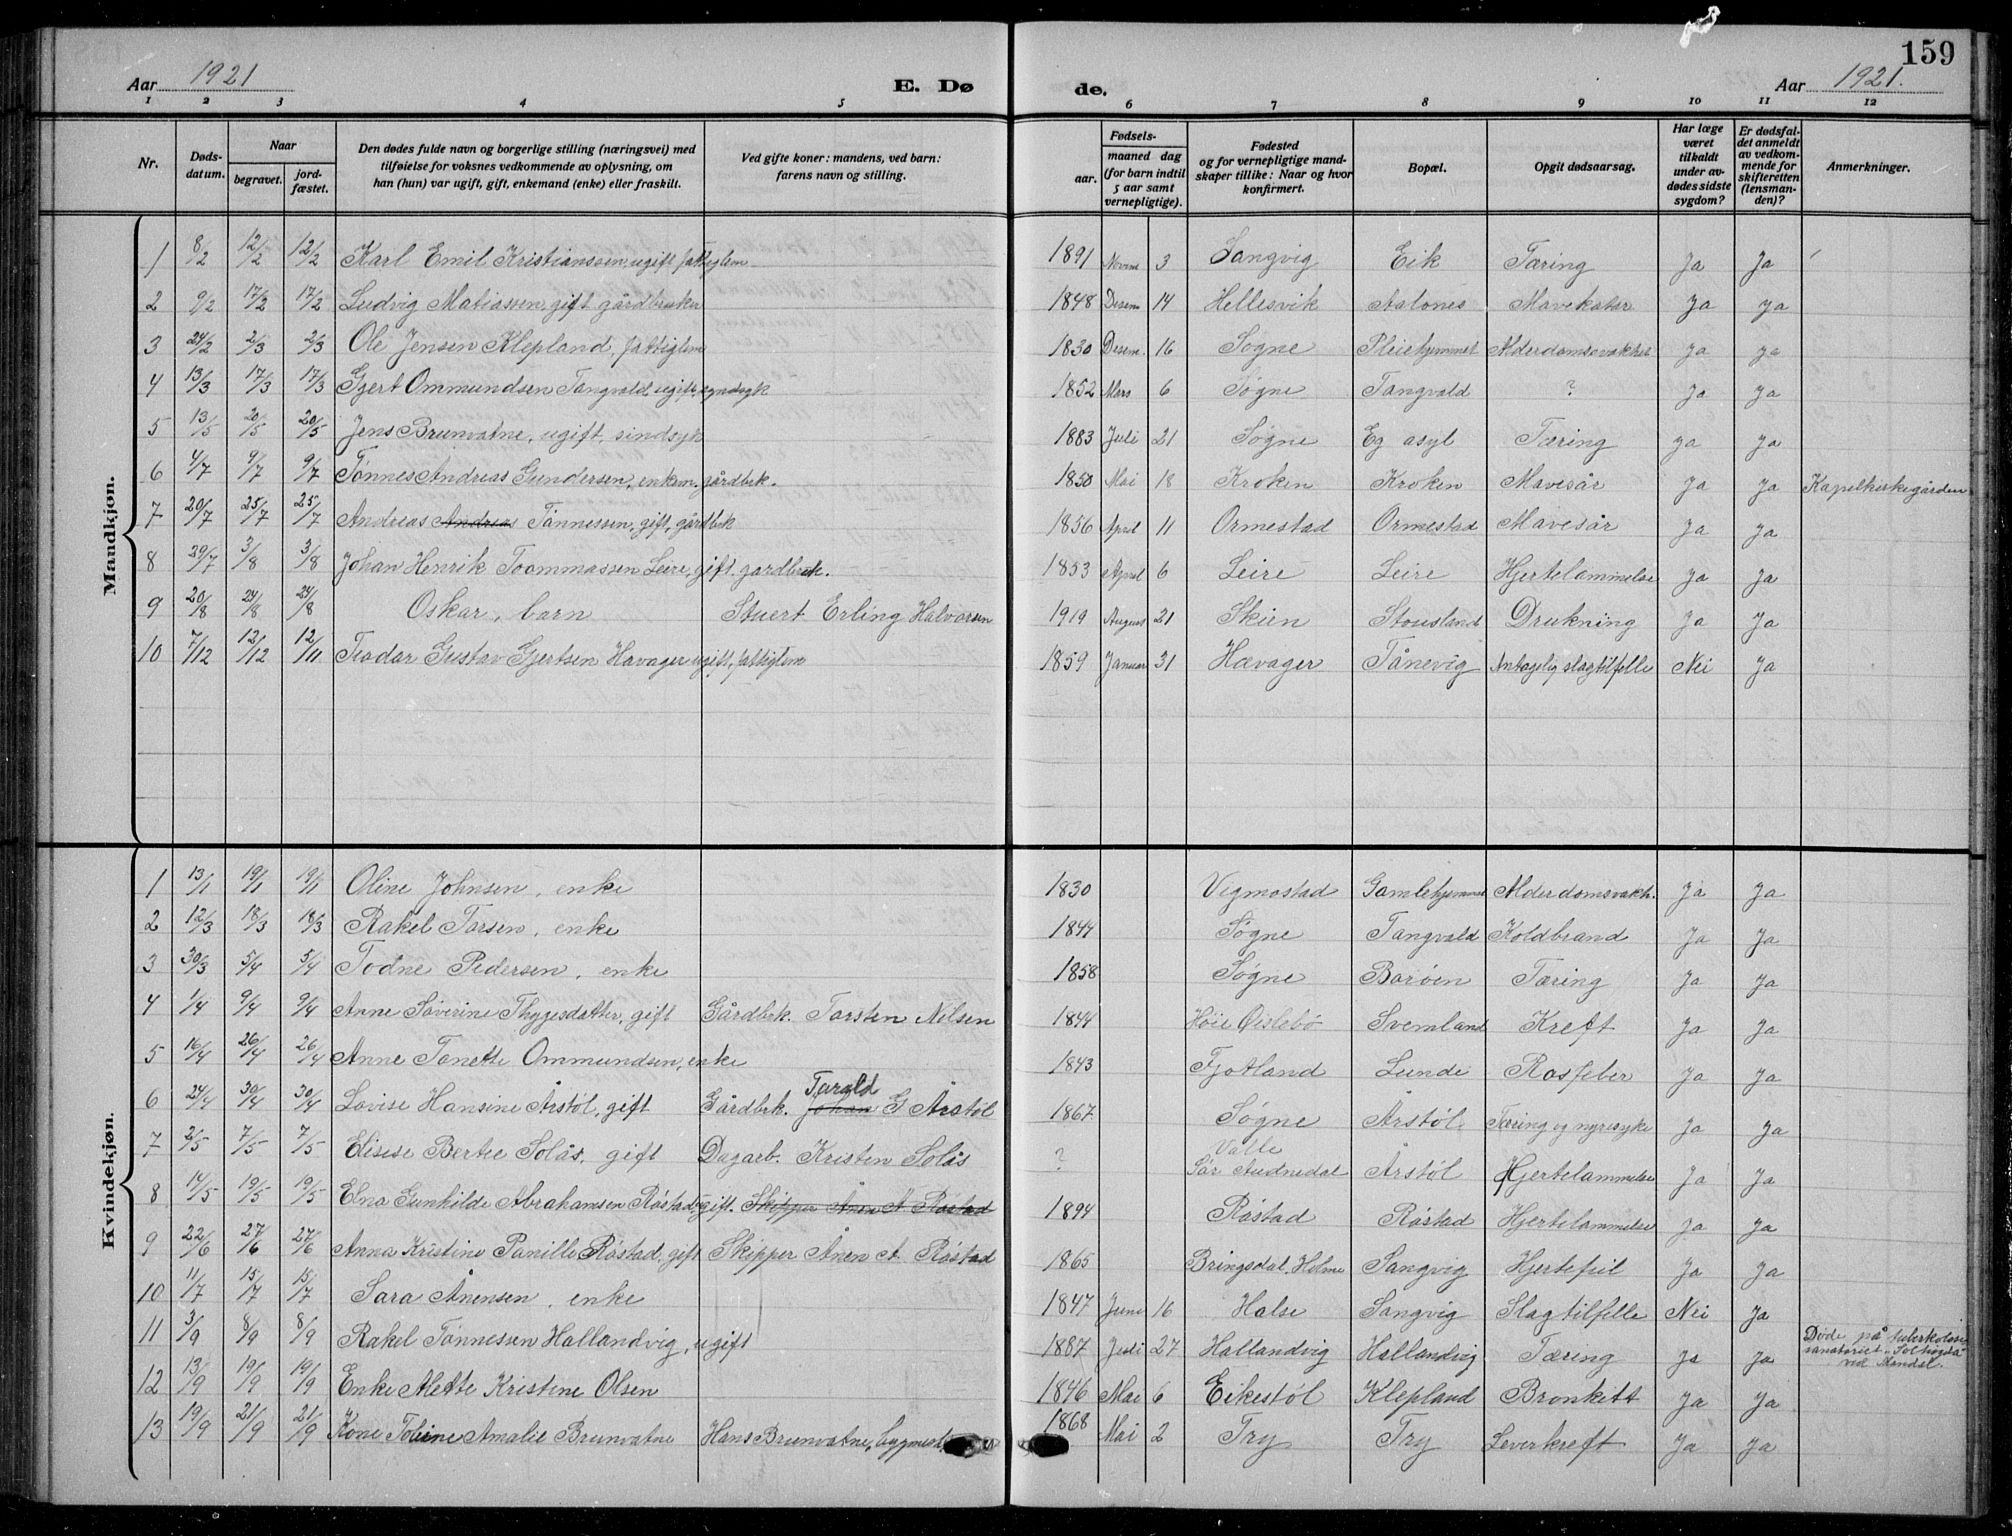 159
Aar 1921 E. Dø de. Aar 1921.
1 2 3 4 5 6 7 8 9 10 11 12
Nr. Døds-datum. Naar begravet. jord-fæstet. Den dødes fulde navn og borgerlige stilling (næringsvei) med tilføielse for voksnes vedkommende av oplysning, om han (hun) var ugift, gift, enkemand (enke) eller fraskilt. Ved gifte koner: mandens, ved barn: farens navn og stilling. Fødsels- aar. maaned dag (for barn indtil 5 aar samt vernepligtige). Fødested og for vernepligtige mand-skaper tillike: Naar og hvor konfirmert. Bopæl. Opgit dødsaarsag. Har læge været tilkaldt under av-dødes sidste sygdom? Er dødsfal-det anmeldt av vedkom-mende for skifteretten (lensman-den)? Anmerkninger.
Mandkjøn.
1 8/2 12/2 12/2 Karl Emil Kristianssen, ugift fattiglem 1891 Novem 3 Langvig Eik Tæring Ja Ja
2 9/2 17/2 17/2 Ludvig Matiassen, gift gårdbruker 1848 Desem 14 Hellesvik Aalones Mavekatar Ja Ja
3 24/2 2/3 2/3 Ole Jensen Klepland, fattiglem 1830 Desem. 16 Søgne Pleiehjemmet Alderdomssvakhet Ja Ja
4 13/3 17/3 17/3 Gjert Ommundsen Tangvald, ugift, 1852 Mars 6 Søgne Tangvald ? Ja Ja
5 13/5 20/5 20/5 Jens Brunvatne, ugift, sindsyk 1883 Juli 21 Søgne Eg asyl Tæring Ja Ja
6 4/7 9/7 9/7 Tønnes Andreas Gundersen, enkem. gårdbrk. 1850 Mai 18 Kroken Kroken Mavesår Ja Ja Kapelkirkegården
7 20/7 25/7 25/7 Andreas Andreas Tønnessen, gift, gårdbrk 1856 April 11 Ormestad Ormestad Mavesår Ja Ja
8 29/7 3/8 3/8 Johan Henrik Toommassen Leire, gift. gardbruk. 1853 April 6 Leire Leire Hjertelammelse Ja Ja
9 20/8 24/8 24/8 Oskar, barn Stuert Erling Halvorsen 1919 August 21 Skien Stousland Drukning Ja Ja
10 7/12 12/12 12/11 Teodor Gustav Gjertsen Havager ugift, fattiglem 1859 Januar 31 Hævager Tånevig Antagelig slagtilfelle Nei Ja
Kvindekjøn.
1 13/1 19/1 19/1 Oline Johnsen, enke 1830 Vigmostad Gamlehjemmet Alderdomsvakh. Ja Ja
2 12/3 18/3 18/3 Rakel Torsen, enke 1844 Søgne Tangvald Koldbrand Ja Ja
3 30/3 5/4 5/4 Todne Pedersen, enke 1858 Søgne Borøen Tæring Ja Ja
4 1/4 9/4 9/4 Anne Severine Thygesdatter, gift Gårdbrk. Torsten Nilsen 1844 Høie Øislebø Svemland Kreft Ja Ja
5 16/4 26/4 26/4 Anne Tonette Ommundsen, enke 1843 Fjotland Lunde Rosfeber Ja Ja
6 24/4 30/4 30/4 Lovise Hansine Årstøl, gift Gårdbrk. Johan Tarald G Årstøl 1867 Søgne Årstøl Tæring og nyresyke Ja Ja
7 2/5 7/5 7/5 Elisise Bertee Solås, gift Dagarb. Kristen Solås ? Valle Sør Audnedal Årstøl Hjertelammelse Ja Ja
8 14/5 19/5 19/5 Elna Gunhilde Abrahamsen Røstad, gift. Skipper Ånen A. Røstad 1894 Røstad Røstad Hjertelammelse Ja Ja
9 22/6 27/6 27/6 Anna Kristine Panille Røstad, gift Skipper Ånen A. Røstad 1865 Bringsdal, Holme Langvig Hjertefeil Ja Ja
10 11/7 15/7 15/7 Sara Ånensen, enke 1847 Juni 16 Halse Langvig Slagtilfelle Nei Ja
11 3/9 8/9 8/9 Rakel Tønnessen Hallandvig, ugift 1887 Juli 27 Hallandvig Hallandvig Tæring Ja Ja Døde på tuberkulose sanatoriet "Solhøgda" ved Mandal.
12 13/9 19/9 19/9 Enke Alette Kristine Olsen 1846 Mai 6 Eikestøl Klepland Bronkitt Ja Ja
13 19/9 21/9 21/9 Kone Toline Amalie Brunvatne Hans Brunvatne, bygmest. 1868 Mai 2 Try Try Leverkreft Ja Ja